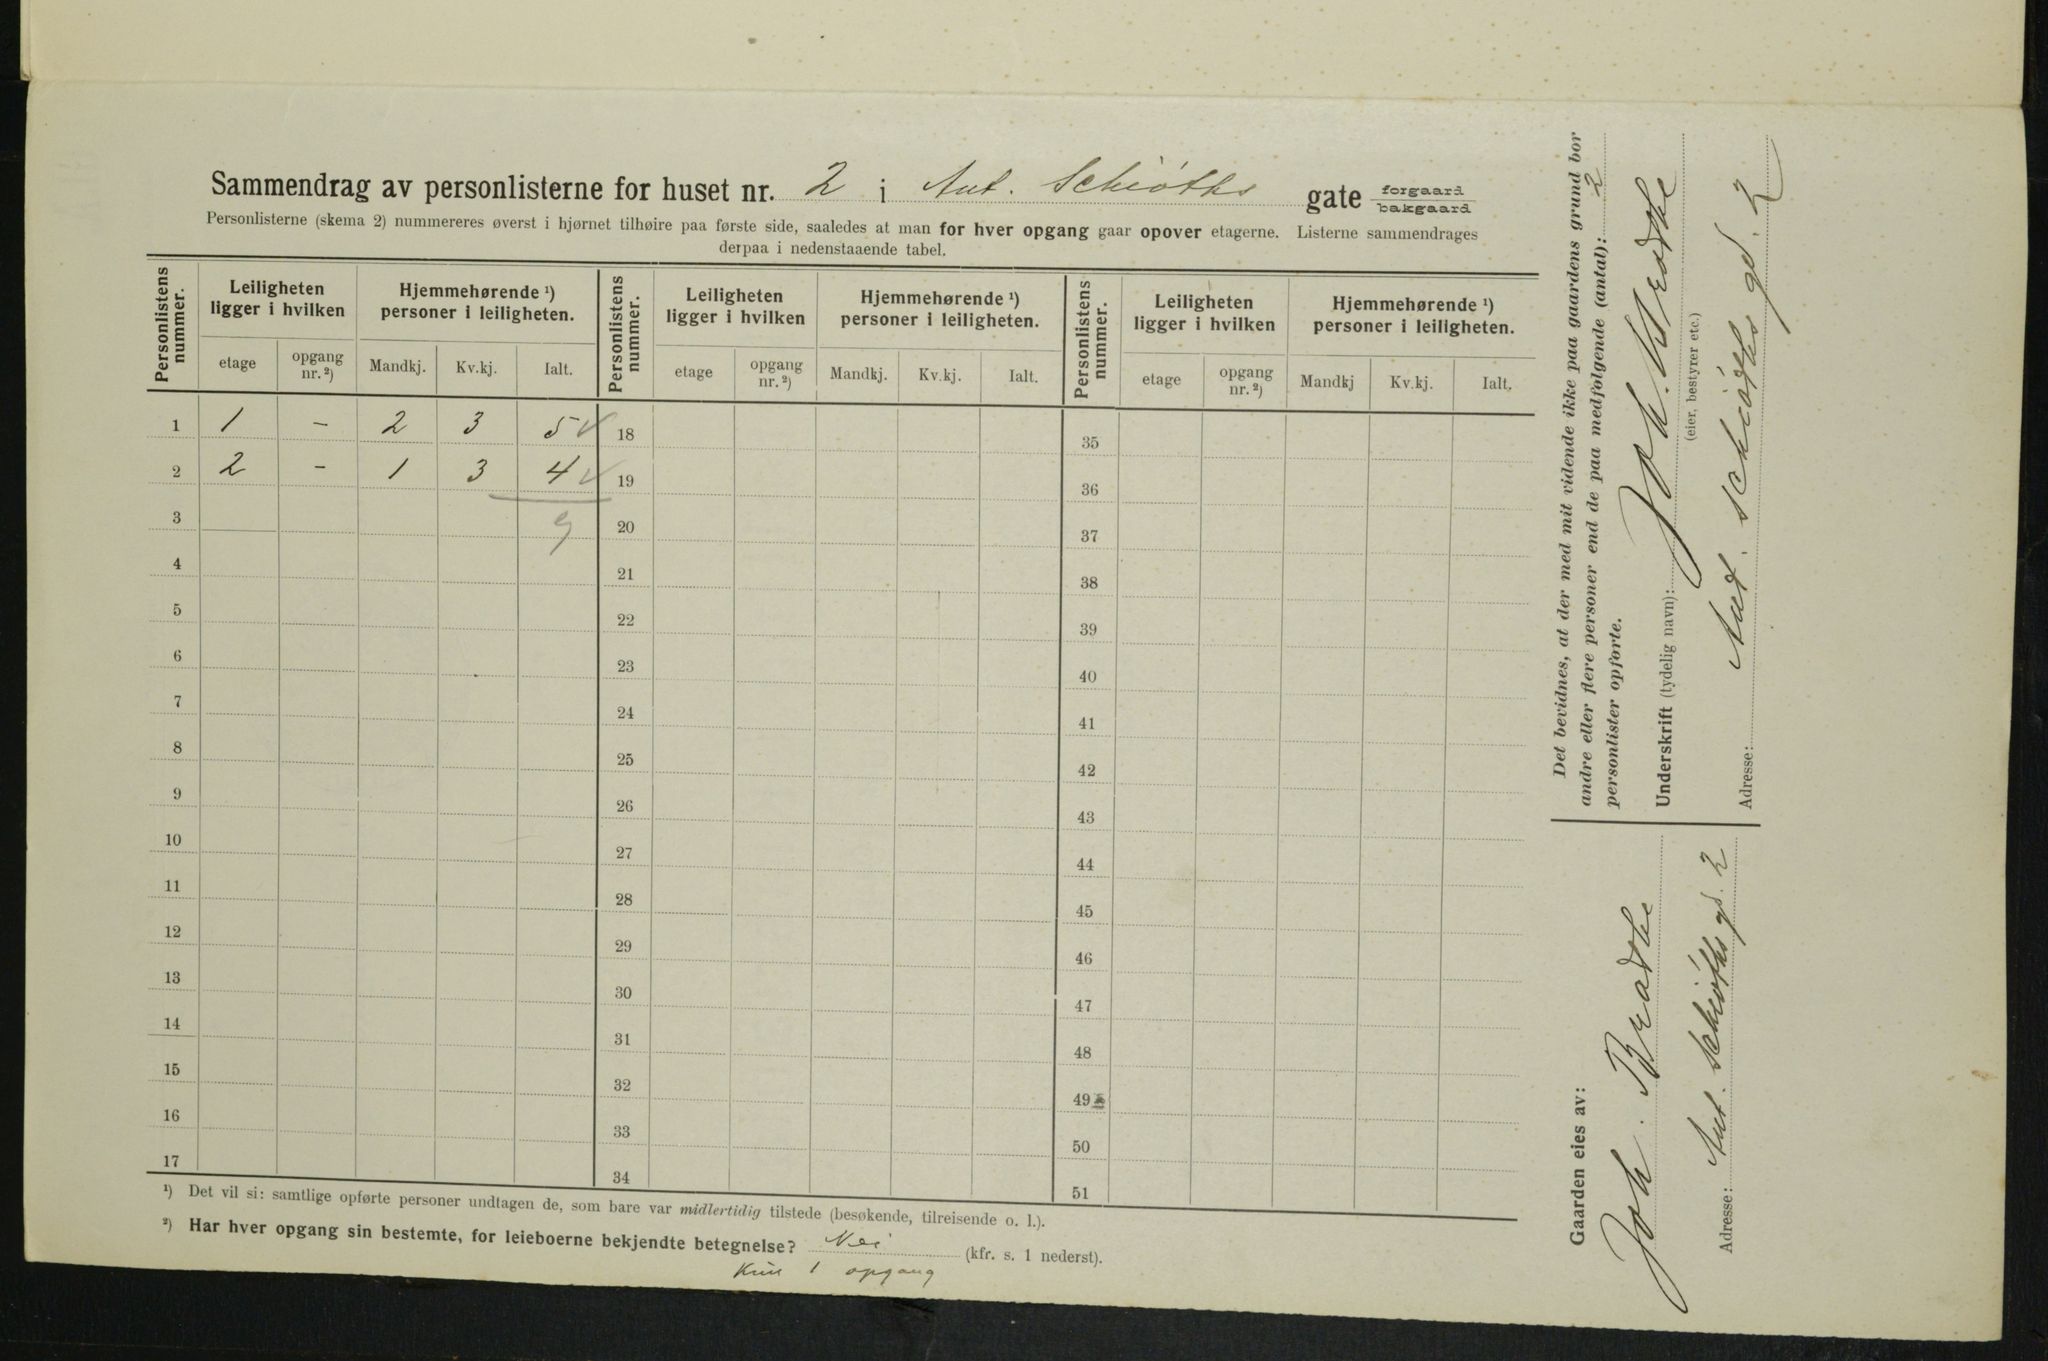 Sammendrag av personlisterne for huset nr. 2 i Ant. Schiøths gate forgaard bakgaard
Personlisterne (skema 2) nummereres øverst i hjørnet tilhøire paa første side, saaledes at man for hver opgang gaar opover etagerne. Listerne sammendrages
derpaa i nedenstaaende tabel.
Personlistens nummer. Leiligheten ligger i hvilken Hjemmehørende ¹) personer i leiligheten. Personlistens nummer. Leiligheten ligger i hvilken Hjemmehørende ¹) personer i leiligheten. Personlistens nummer. Leiligheten ligger i hvilken Hjemmehørende ¹) personer i leiligheten.
etage opgang nr. ²) Mandkj. Kv.kj. Ialt. etage opgang nr. ²) Mandkj. Kv.kj. Ialt. etage opgang nr. ²) Mandkj Kv.kj. Ialt.
1 1 – 2 3 5 ✓ 18 35
2 2 – 1 3 4 ✓ 19 36
3 9 20 37
4 21 38
5 22 39
6 23 40
7 24 41
8 25 42
9 26 43
10 27 44
11 28 45
12 29 46
13 30 47
14 31 48
15 32 49
16 33 50
17 34 51
¹) Det vil si: samtlige opførte personer undtagen de, som bare var midlertidig tilstede (besøkende, tilreisende o. l.).
²) Har hver opgang sin bestemte, for leieboerne bekjendte betegnelse? Nei (kfr. s. 1 nederst).
Kun 1 opgang
Det bevidnes, at der med mit vidende ikke paa gaardens grund bor
andre eller flere personer end de paa medfølgende (antal): 2
personlister opførte.
Underskrift (tydelig navn): Joh. Bradtke
(eier, bestyrer etc.)
Adresse: Ant. Schiøths gd. 2
Gaarden eies av:
Joh. Bradtke
Adresse: Ant. Schiøths gd. 2